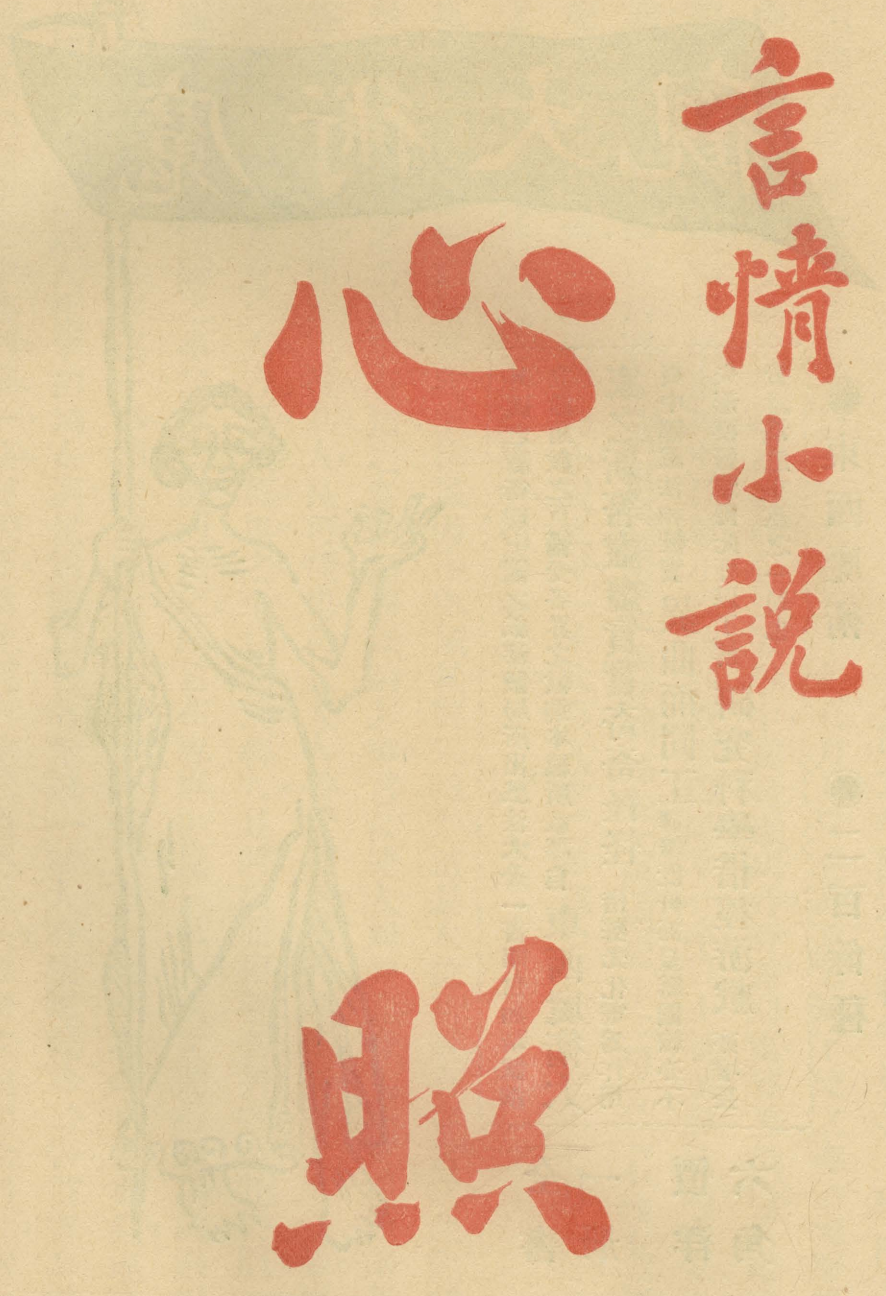 言情小説
心照